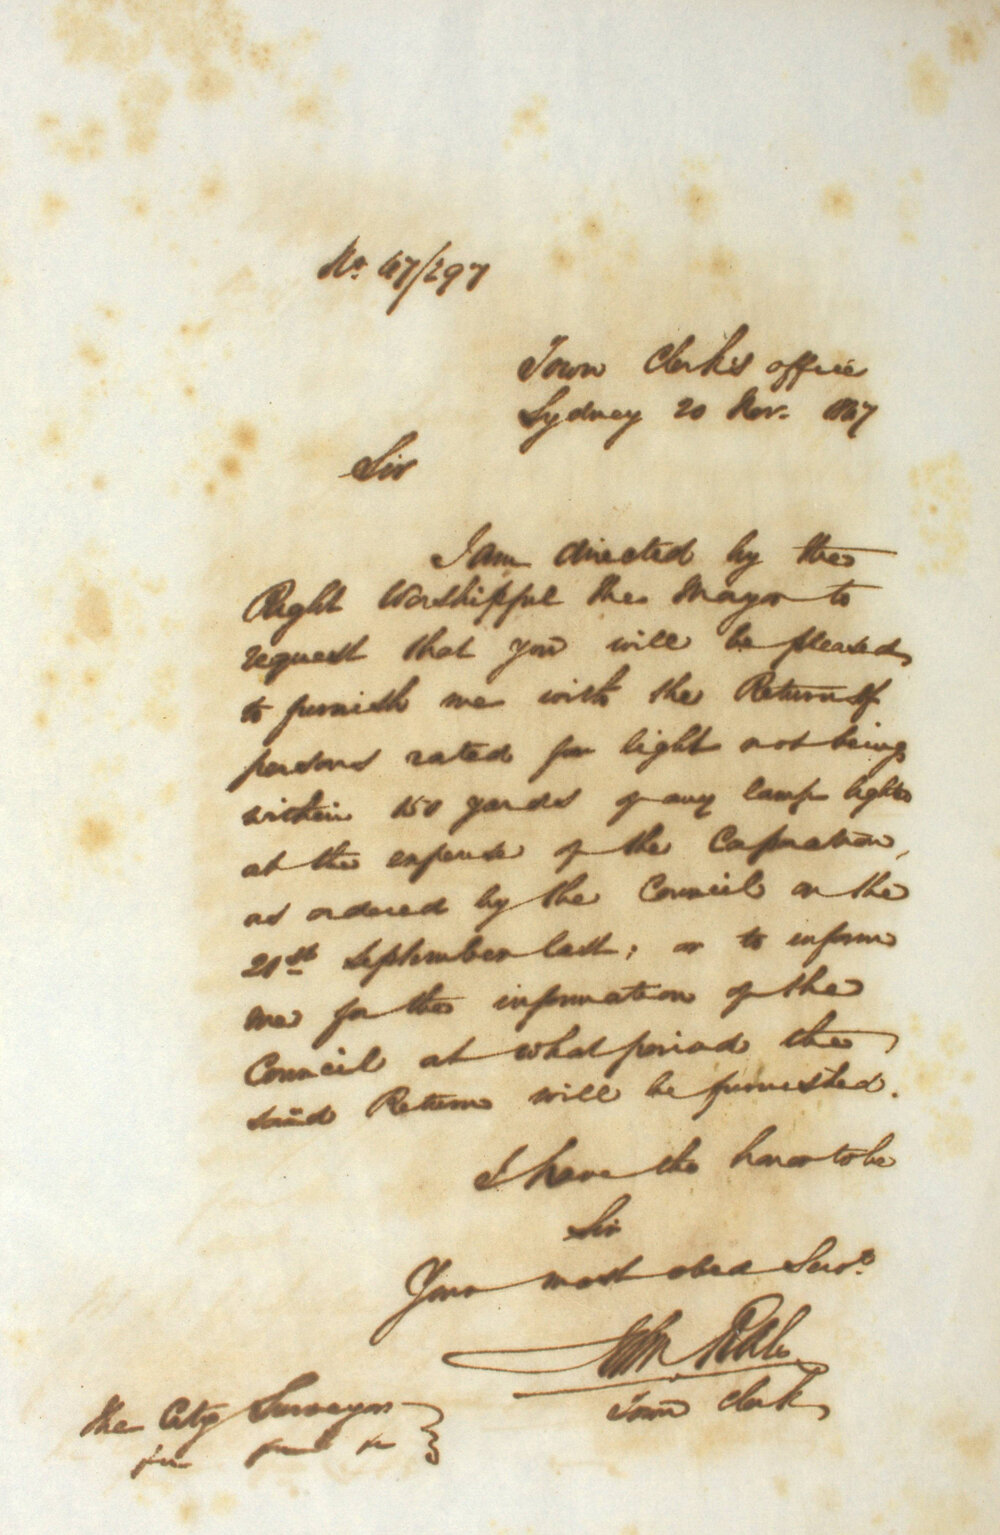 No. 47/297
Town Clerk's office
Sydney 20 Nov. 1847
Sir
I am directed by the
Right Worshipful the Mayor to
request that you will be pleased
to furnish me with the Return of
persons rated for light not being
within 150 yards of any lamp light
at the expense of the Corporation,
as ordered by the Council on the
21st September last; or to inform
me for the information of the
Council at what period the
said Return will be furnished.
I have the honor to be
Sir
Your most obed Servt.
John
Town Clerk
The City Surveyor